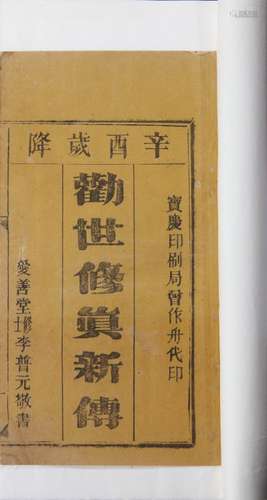 辛酉歲降
寶慶印刷局曾作舟代印
勸世修眞新傳
愛善堂李普元敬書